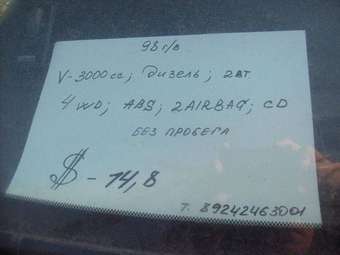 98 г/в
V-3000cc; дизель; 2WT
4WD; ABS; 2AIRBAG; CD
БЕЗ ПРОБЕГА
$ - 14,8
т. 89242463001